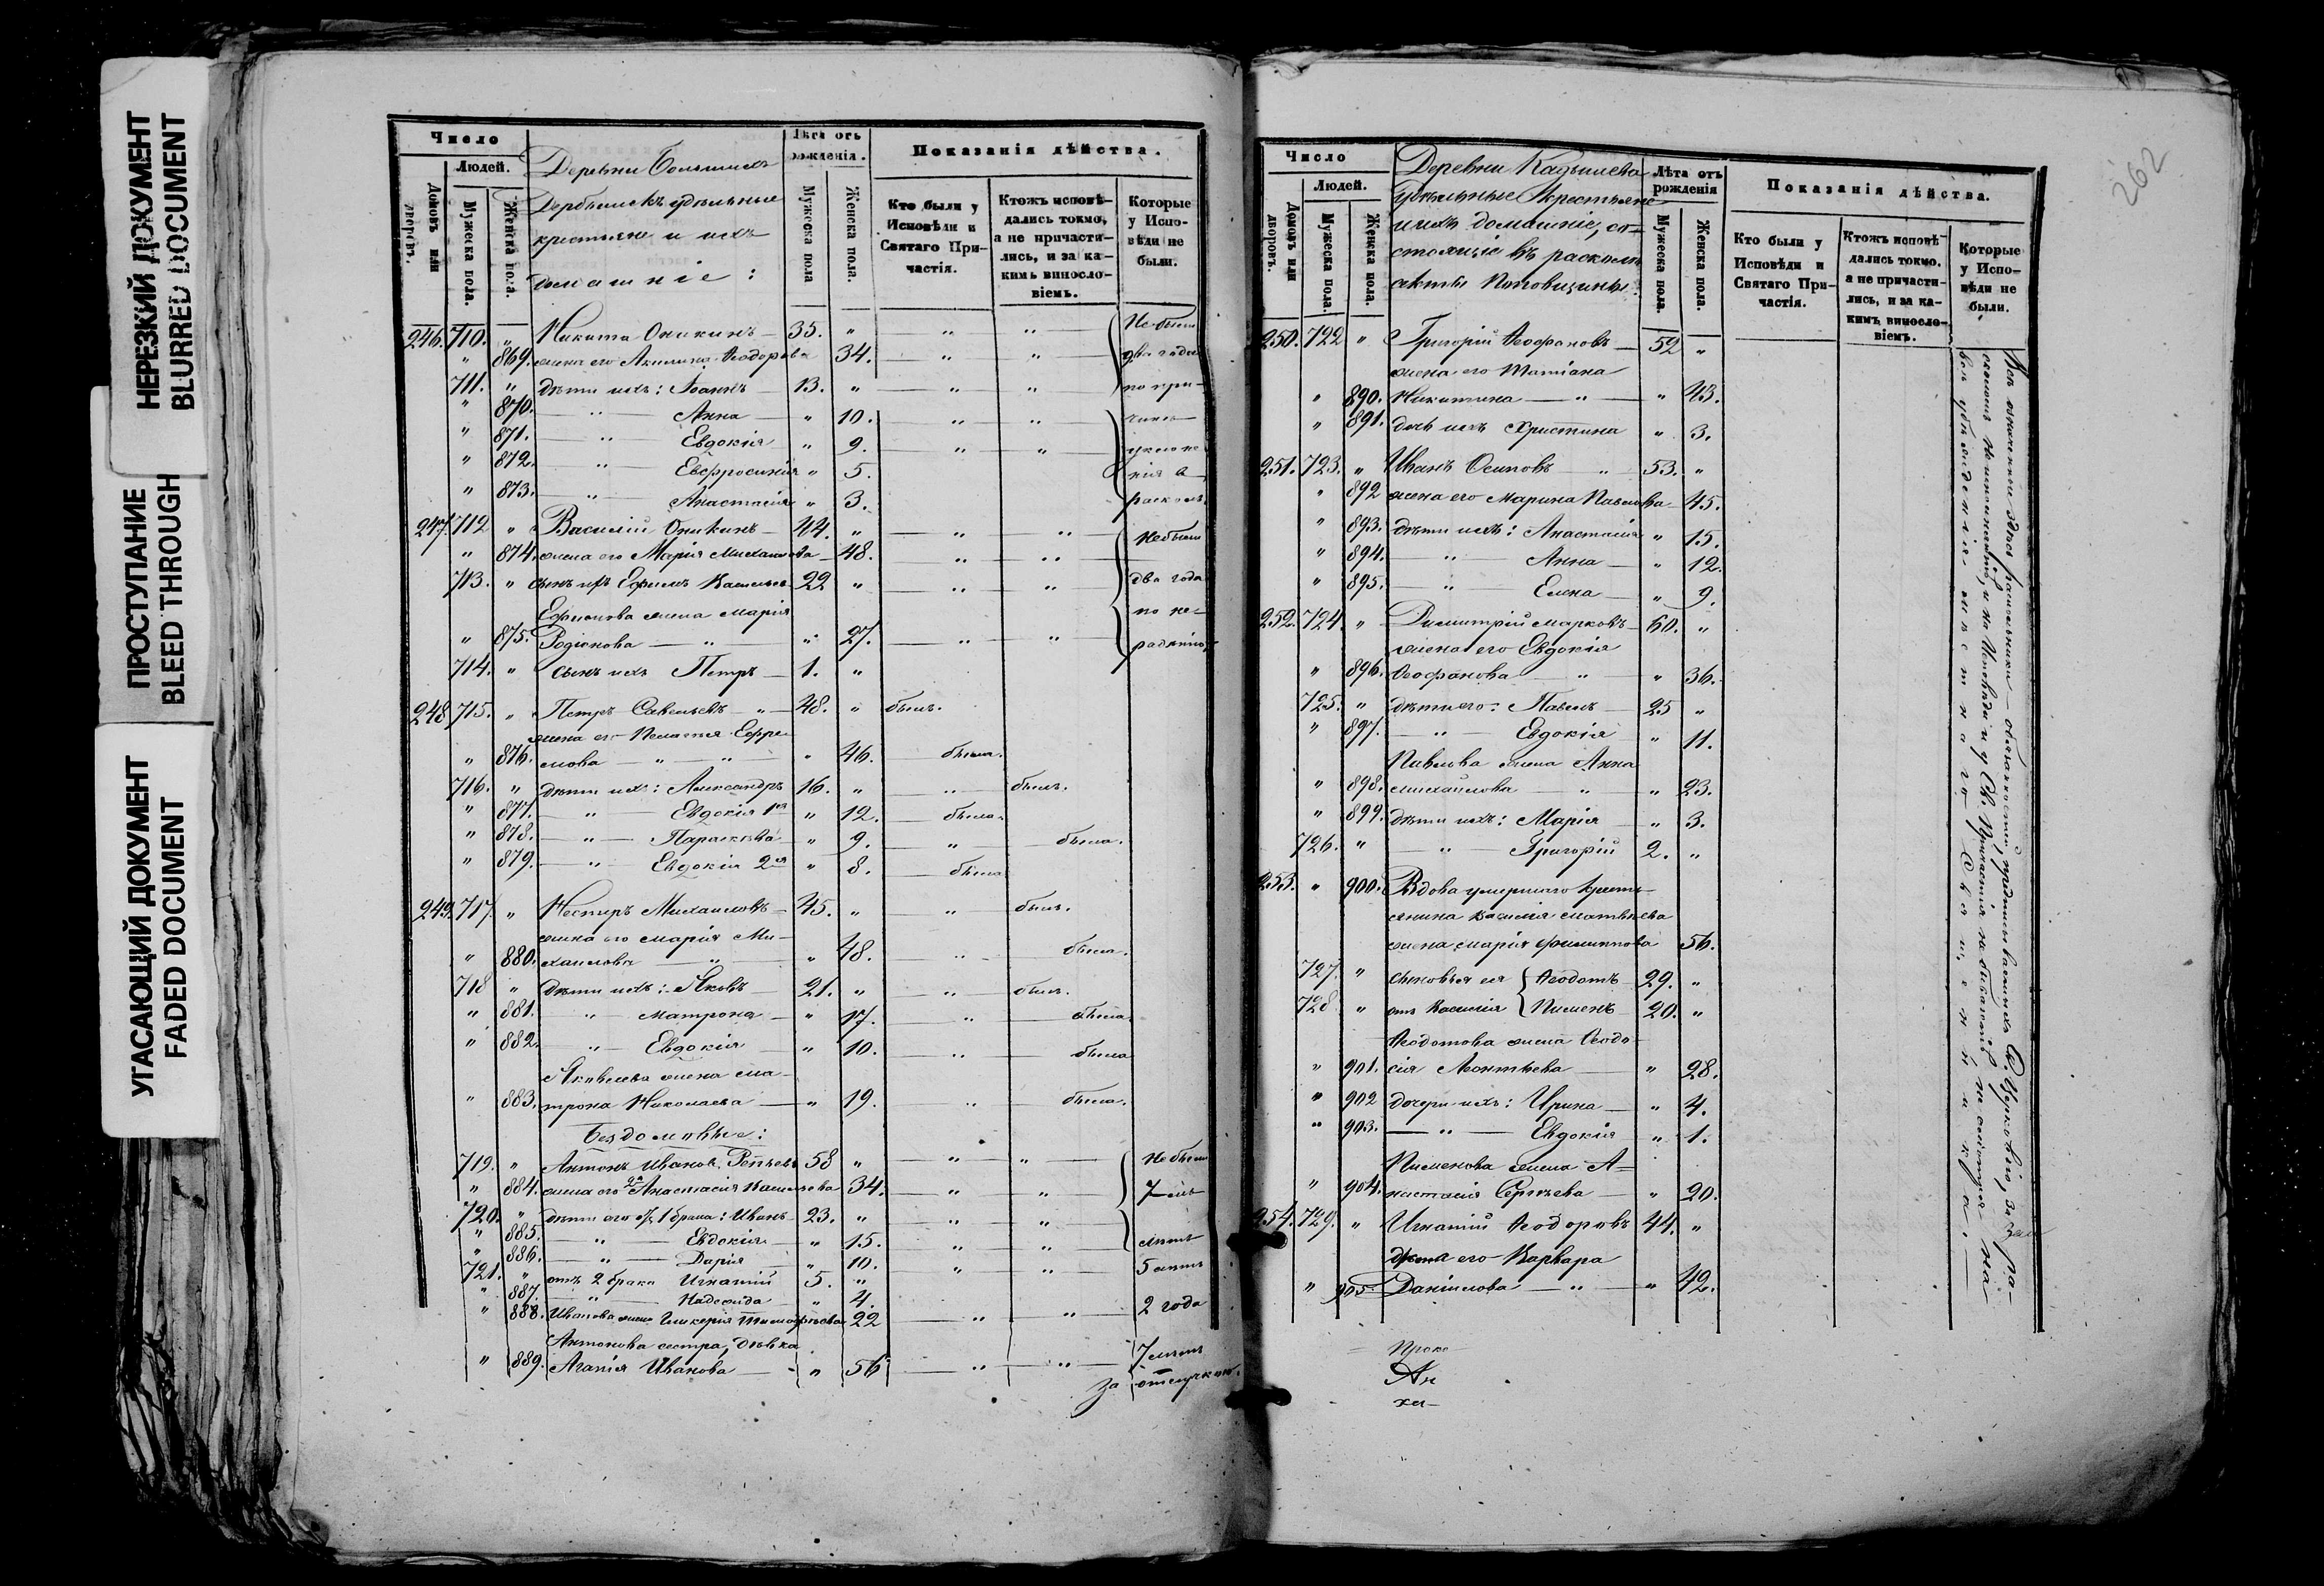 НЕРЕЗКИЙ ДОКУМЕНТ
BLURRED DOCUMENT
ПРОСТУПАНИЕ
BLEED THROUGH
УГАСАЮЩИЙ ДОКУМЕНТ
FADED DOCUMENT
Число
Людей.
Домовъ или дворовъ.
Мужеска пола.
Женска пола.
Деревни Большихъ
Дербышекъ удѣльные
крестьяне и ихъ
домашніе:
Лѣта отъ рожденія.
Мужеска пола
Женска пола.
Показанія дѣйства.
Кто были у Исповѣди и Святаго Причастія.
Ктожъ исповѣдались токмо, а не причастились, и за какимъ винословіемъ.
Которые у Исповѣди не были.
246. 710. " Никита Оникинъ — 35. " " " Не были
" 869. жена его Акилина Ѳеодорова 34. " " два года
711. " дѣти ихъ: Іоаннъ — 13. " " " по при-
" 870. " Анна — " 10. " " чинѣ
" 871. " Евдокія " 9. " " уклоне-
" 872. " Евфросинія " 5. нія в
" 873. " Анастасія " 3. расколъ
247. 712 " Василій Оникинъ — 44. " " " Не были
" 874. жена его Марія Михаилова 48. " "
713. " сынъ ихъ Ефимъ Васильевъ 22 " " " два года
Ефимова жена Марія
" 875. Родіонова — " — " 27. " " по не-
радѣнію
714. " сынъ ихъ Петръ — 1. "
248 715. " Петръ Савельевъ — " — 48. " былъ.
жена его Пелагія Ефре-
" 876. мова — " — " — " 46. была.
716. " дѣти ихъ: Александръ 16. " " былъ.
" 877. " Евдокія 1я " 12. была.
" 878. " Параскева " 9. " была.
" 879. " Евдокія 2я " 8. была
249. 717. " Несторъ Михаиловъ — 45. " " былъ.
жена его Марія Ми-
" 880. хаилова — " — " 48. " была.
718 " дѣти ихъ: Яковъ — 21. " " былъ.
" 881. " Матрона — " 17. " была
" 882. " Евдокія " 10. " была
Яковлева жена Ма-
" 883. трона Николаева — " 19. " была.
Бездомовые:
719. " Антонъ Ивановъ Репьевъ 58 " " " Не были
" 884. жена его 2я Анастасія Васильева 34. " " 7
720. " дѣти его отъ 1 брака: Иванъ 23. " " "
" 885. " Евдокія " 15. " " лѣтъ
" 886. " Дарія " 10. " " 5 лѣтъ
721. " отъ 2 брака Игнатій 5. "
" 887. " Надежда " 4.
" 888. Иванова жена Гликерія Тимофеева 22 " " 2 года
Антонова сестра, дѣвка
" 889. Агапія Иванова — " 56 " " 7 лѣтъ
за отлучкою.
262
Число
Людей.
Домовъ или дворовъ.
Мужеска пола.
Женска пола.
Деревни Кадышева
удѣльные крестьяне
и ихъ домашніе, со-
стоящіе въ расколѣ
секты Поповщины:
Лѣта отъ рожденія
Мужеска пола.
Женска пола.
Показанія дѣйства.
Кто были у Исповѣди и Святаго Причастія.
Ктожъ исповѣдались токмо. а не причастились, и за какимъ винословіемъ.
Которые у Исповѣди не были.
250. 722 " Григорій Ѳеофановъ — 52 "
жена его Татіана
" 890. Никитина — " — " 43.
" 891. дочь ихъ Христина " 3.
251. 723. " Иванъ Осиповъ " 53. "
" 892 жена его Марина Павлова 45.
" 893. дѣти ихъ: Анастасія " 15.
" 894. " Анна — " 12.
" 895. " Елена — " 9.
252. 724. " Димитрій Марковъ 60. "
жена его Евдокія
" 896. Ѳеофанова — " " 36.
725. " дѣти его: Павелъ — 25 "
" 897. " Евдокія " 11.
Павлова жена Анна
" 898. Михаилова — " " 23.
" 899. дѣти ихъ: Марія — " 3.
726. " " Григорій 2. "
253. " 900. Вдова умершаго кресть-
янина Василія Матвѣева
жена Марія Филиппова 56.
727. " сыновья ея Ѳеодотъ 29. "
728 " отъ Василія Пименъ — 20. "
Ѳеодотова жена Ѳеодо-
" 901. сія Леонтьева — " 28.
" 902 дочери ихъ: Ирина — " 4.
" 903. " Евдокія " 1.
Пименова жена А-
" 904. настасія Сергѣева — " 20.
254. 729. " Игнатій Ѳеодоровъ 44. "
жена его Варвара
" 905 Даніилова — " — " 42.
Ан